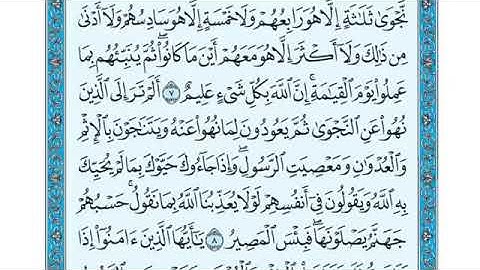 نَّجْوَىٰ ثَلَٰثَةٍ إِلَّا هُوَ رَابِعُهُمْ وَلَا خَمْسَةٍ إِلَّا هُوَ سَادِسُهُمْ وَلَآ أَدْنَىٰ
مِن ذَٰلِكَ وَلَآ أَكْثَرَ إِلَّا هُوَ مَعَهُمْ أَيْنَ مَا كَانُوا۟ ۖ ثُمَّ يُنَبِّئُهُم بِمَا
عَمِلُوا۟ يَوْمَ ٱلْقِيَٰمَةِ ۚ إِنَّ ٱللَّهَ بِكُلِّ شَىْءٍ عَلِيمٌ ٧ أَلَمْ تَرَ إِلَى ٱلَّذِينَ
نُهُوا۟ عَنِ ٱلنَّجْوَىٰ ثُمَّ يَعُودُونَ لِمَا نُهُوا۟ عَنْهُ وَيَتَنَٰجَوْنَ بِٱلْإِثْمِ
وَٱلْعُدْوَٰنِ وَمَعْصِيَتِ ٱلرَّسُولِ ۖ وَإِذَا جَآءُوكَ حَيَّوْكَ بِمَا لَمْ يُحَيِّكَ
بِهِ ٱللَّهُ وَيَقُولُونَ فِىٓ أَنفُسِهِمْ لَوْلَا يُعَذِّبُنَا ٱللَّهُ بِمَا نَقُولُ ۚ حَسْبُهُمْ
جَهَنَّمُ يَصْلَوْنَهَا ۖ فَبِئْسَ ٱلْمَصِيرُ ٨ يَٰٓأَيُّهَا ٱلَّذِينَ ءَامَنُوٓا۟ إِذَا